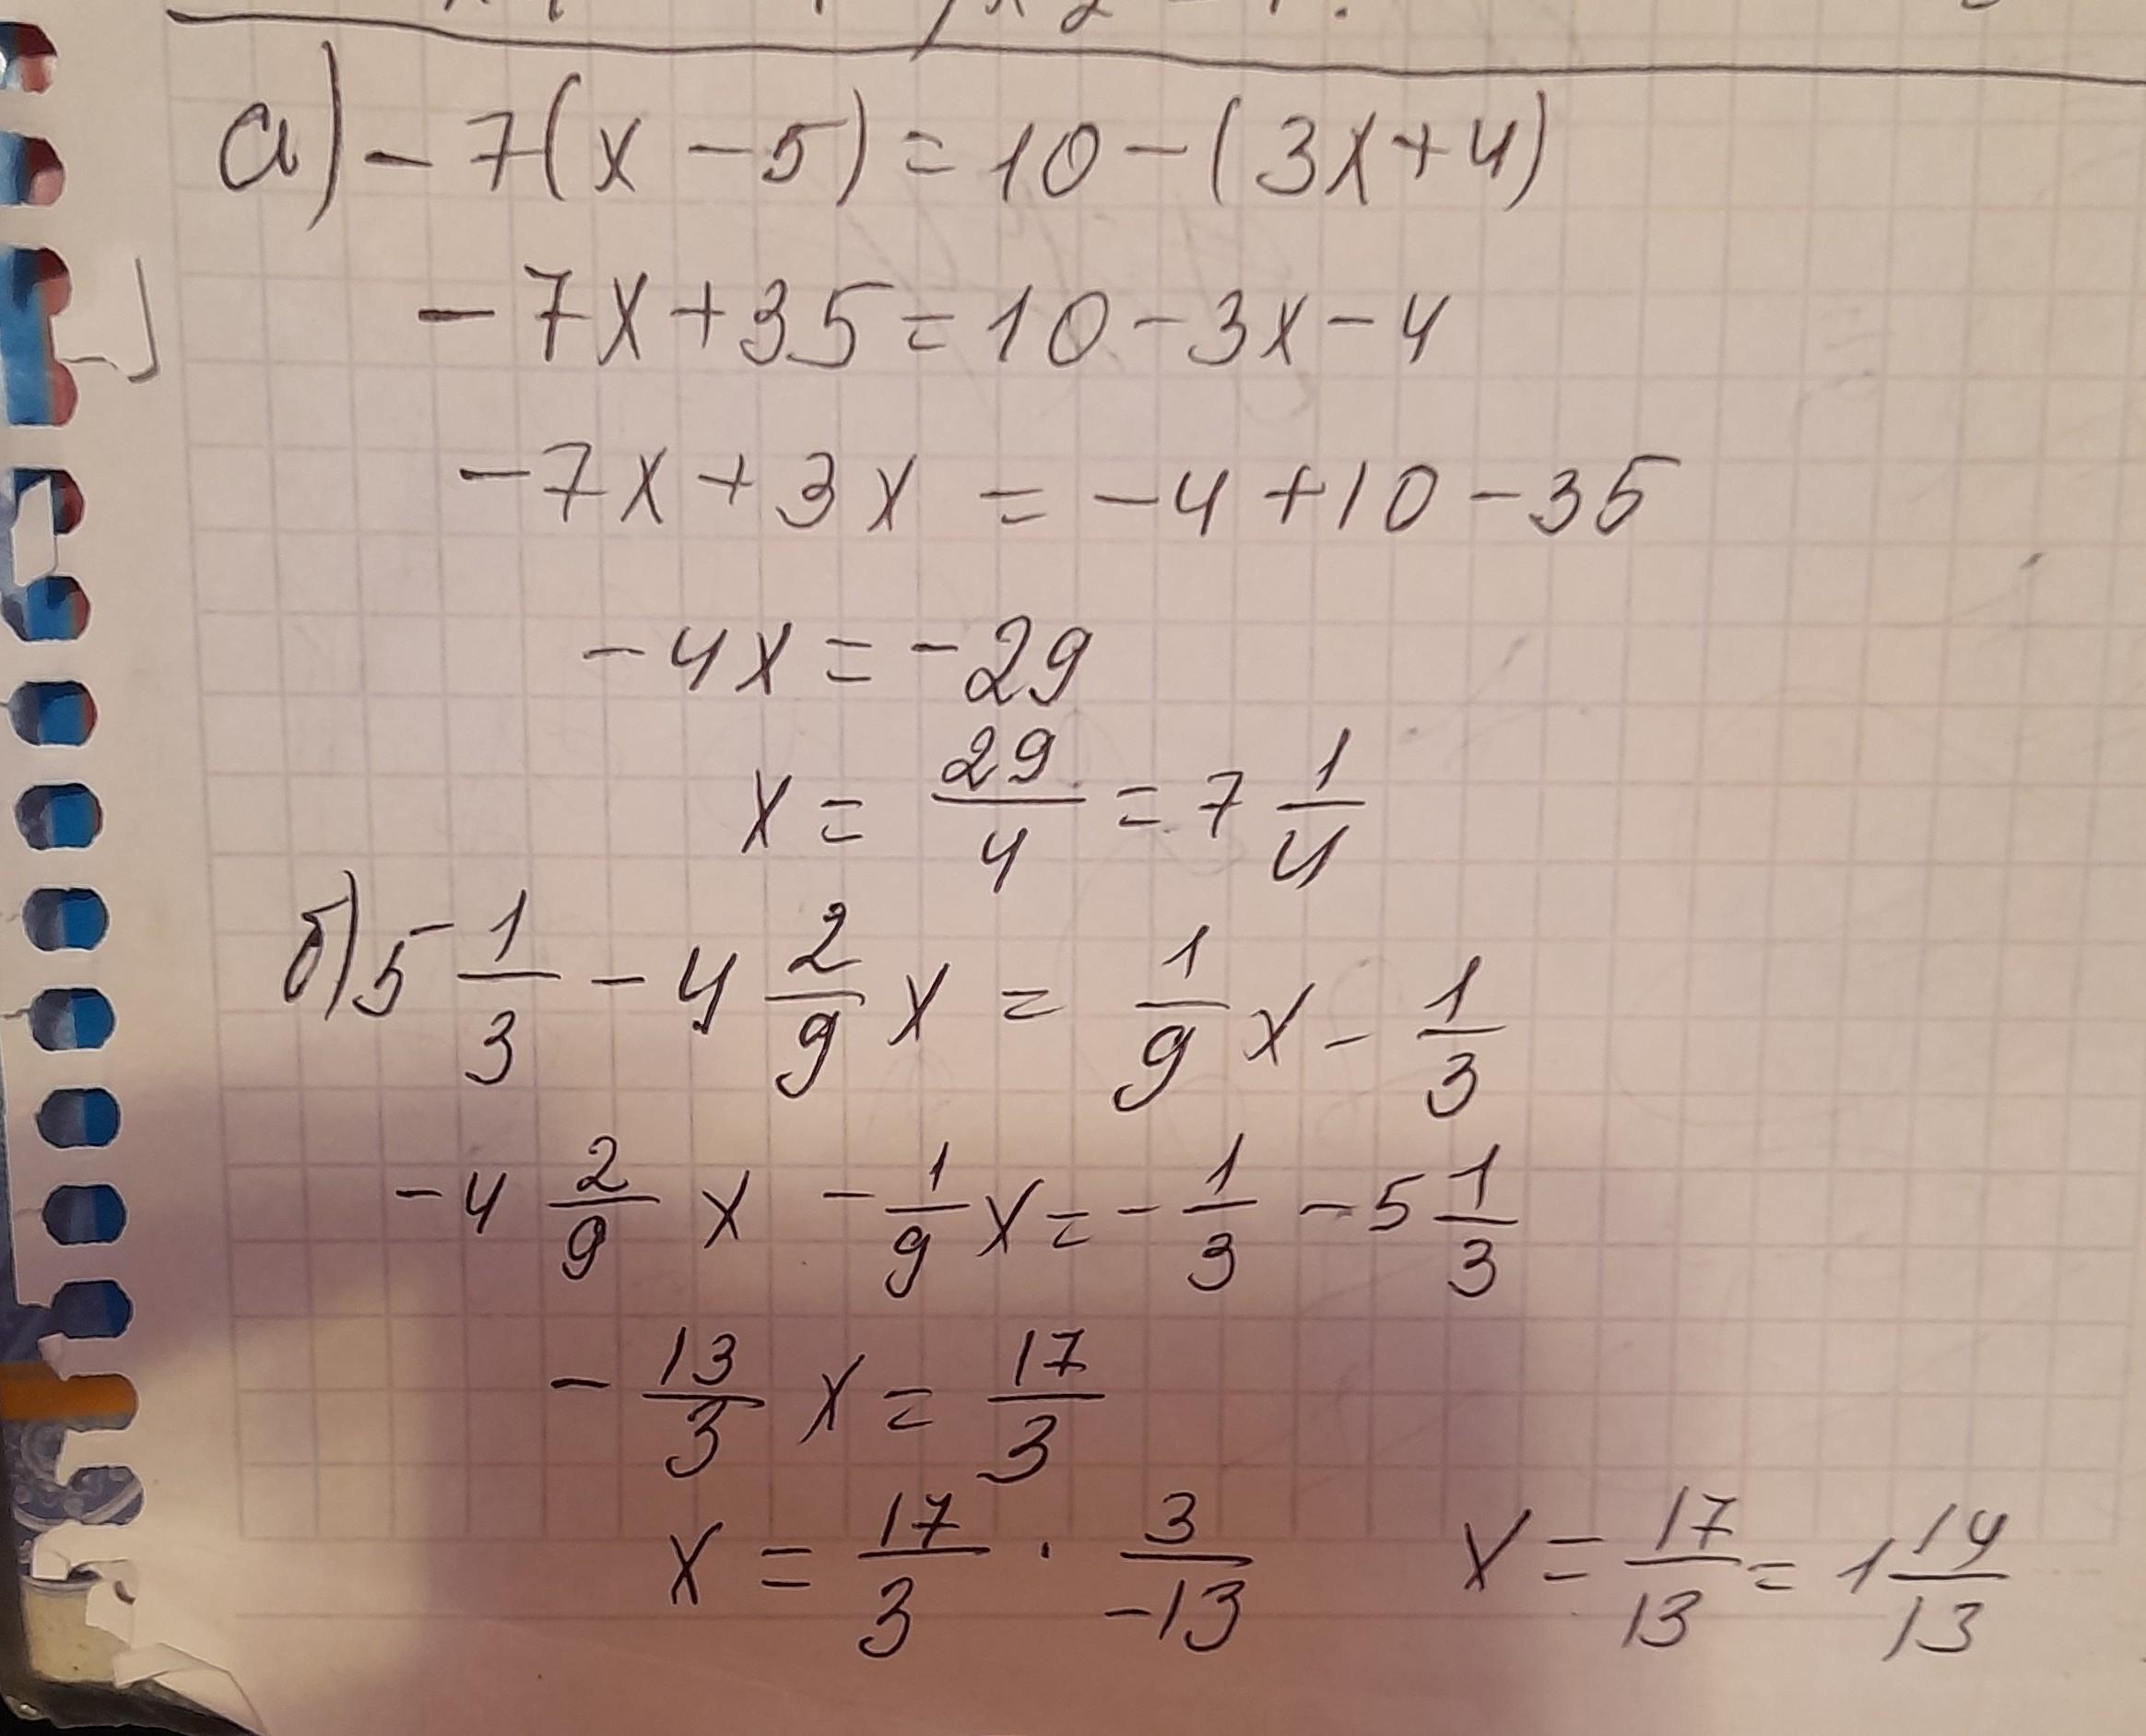 а) - 7(x - 5) = 10 - (3x + 4)
- 7x + 35 = 10 - 3x - 4
- 7x + 3x = - 4 + 10 - 35
- 4x = - 29
x = 29/4 = 7 1/4
б) 5 1/3 - 4 2/9 x = 1/9 x - 1/3
- 4 2/9 x - 1/9 x = - 1/3 - 5 1/3
- 13/3 x = 17/3
x = 17/3 · 3/-13 x = 17/13 = 1 14/13